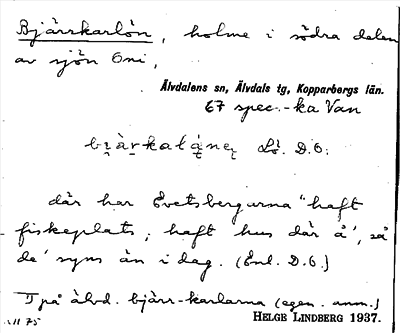 Bjärrkarlön, holme i södra delen
av sjön Oni,
Älvdalens sn, Älvdals tg, Kopparbergs län.
67 spec.-ka Van
Lŏ. D.O.
där har Evetsbergarna "haft
fiskeplats, haft hus där å', så
de' syns än i dag. (Enl. D.O.)
I på älvd. bjärr-karlarna (egen. anm.)
HELGE LINDBERG 1937.
VII 75